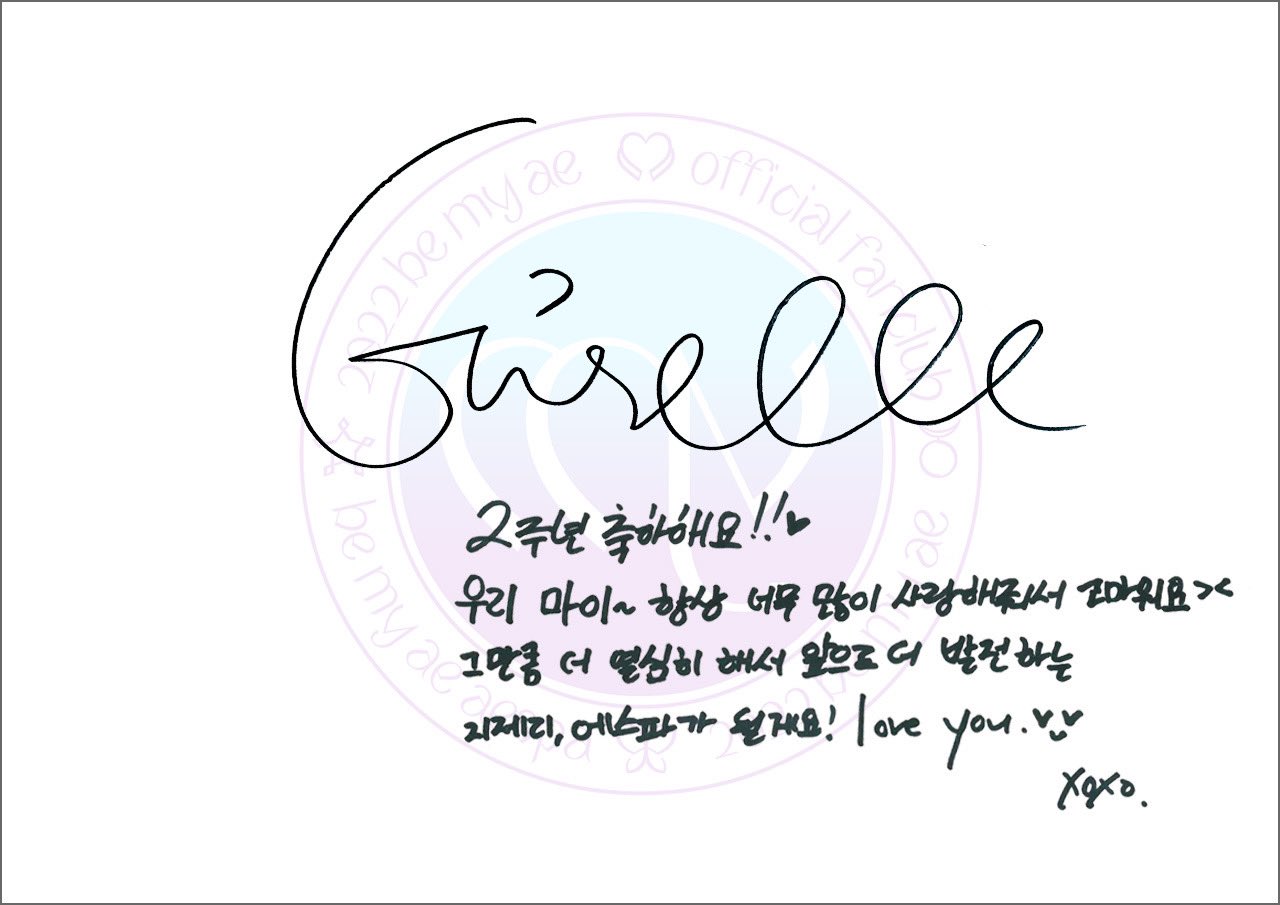 Giselle
2주년 축하해요!!♥
우리 마이~ 항상 너무 많이 사랑해줘서 고마워요><
그만큼 더 열심히 해서 앞으로 더 발전하는
지제리, 에스파가 될게요! love you.
xoxo.
2022 be my ae official fanclub
be my ae aespa